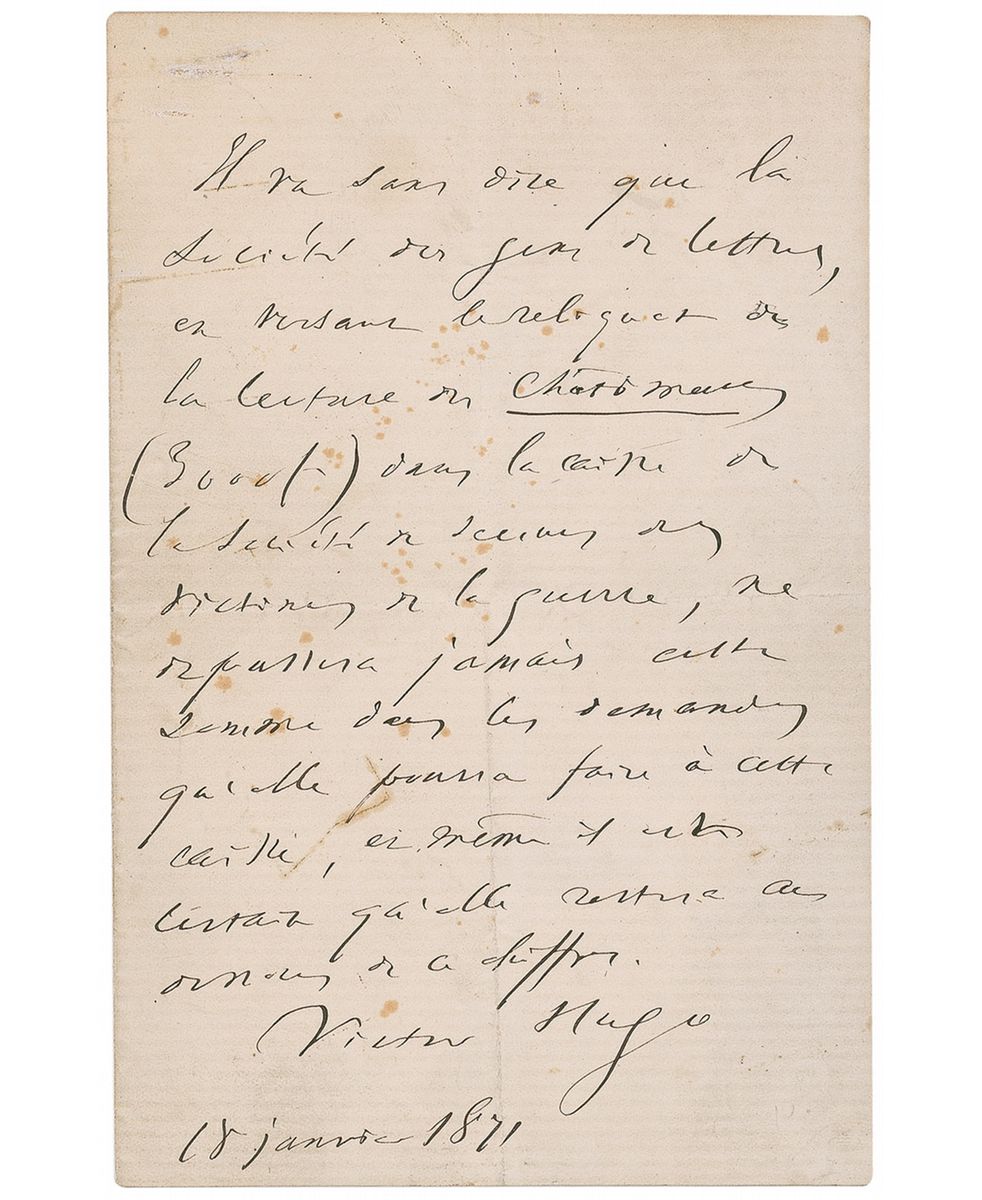 Il va sans dire que la
Société des gens de lettres,
en versant le reliquat de
la lecture des Châtiments
(3000 f.) dans la caisse de
la Société de secours des
victimes de la guerre, ne
dépassera jamais cette
somme dans les demandes
qu'elle pourra faire à cette
caisse, et même il est
certain qu'elle restera au
dessous de ce chiffre.
Victor Hugo
18 janvier 1871